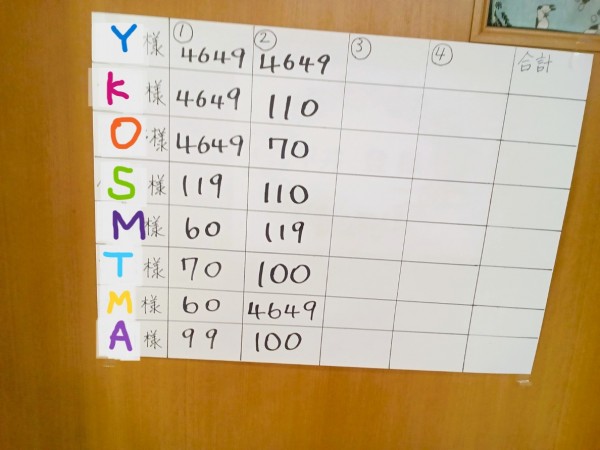 ① ② ③ ④ 合計
Y様 4649 4649
K様 4649 110
O様 4649 70
S様 119 110
M様 60 119
T様 70 100
M様 60 4649
A様 99 100